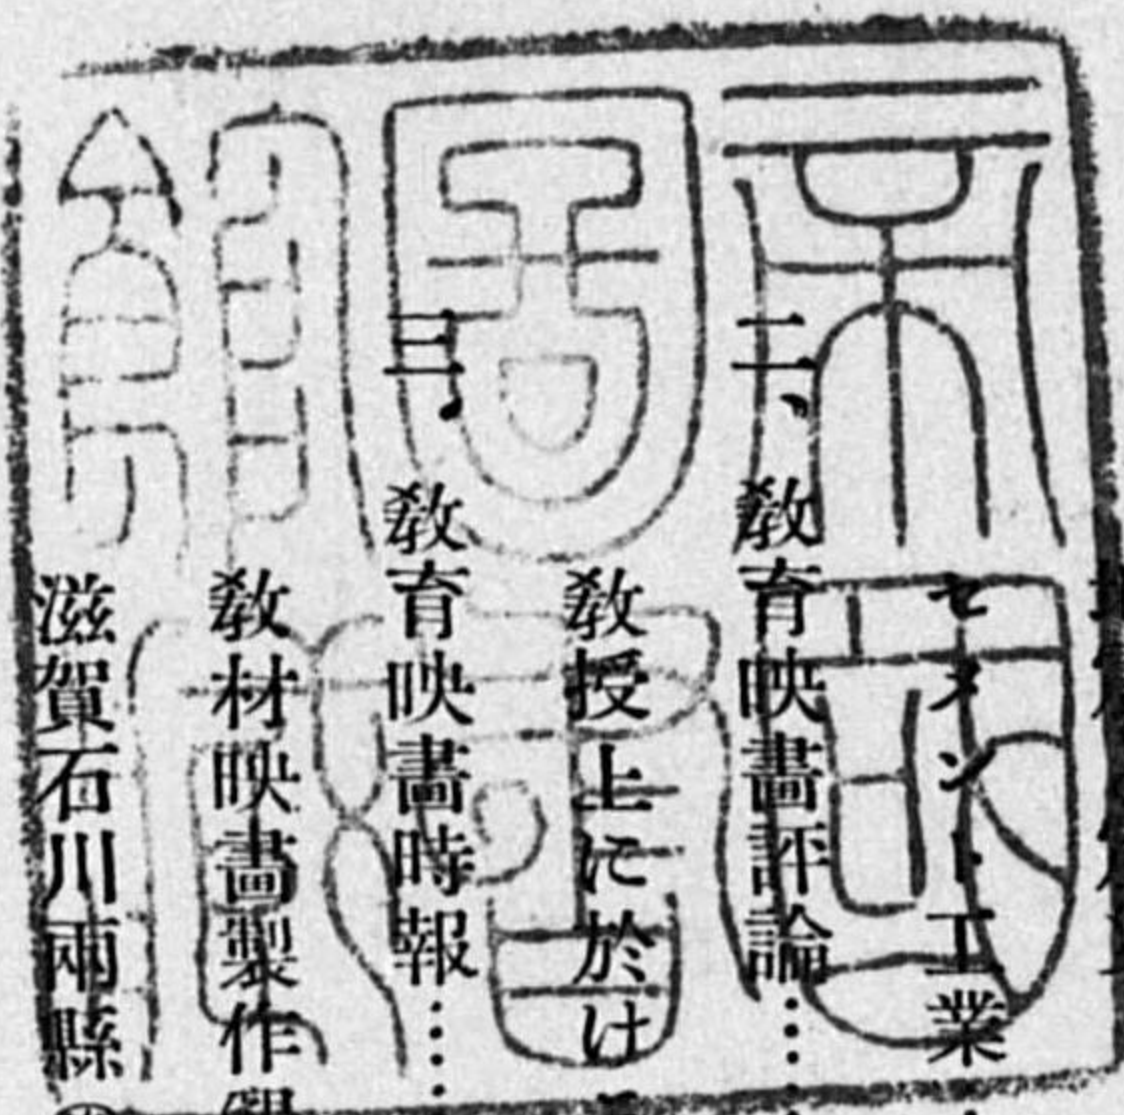 セメント工業
二、教育映畫評論……
教授上に於け
三、教育映畫時報……
教材映畫製作
滋賀石川兩縣
帝國圖書館藏